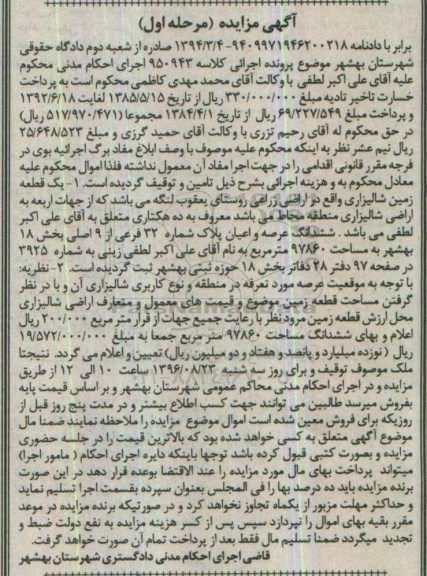 آگهی مزایده (مرحله اول)
برابر با دادنامه ۹۴۰۹۹۷۱۹۴۶۲۰۰۲۱۸-۱۳۹۴/۳/۴ صادره از شعبه دوم دادگاه حقوقی
شهرستان بهشهر موضوع پرونده اجرائی کلاسه ۹۵۰۹۴۳ اجرای احکام مدنی محکوم
علیه آقای علی اکبر لطفی با وکالت آقای محمد مهدی کاظمی محکوم است به پرداخت
خسارت تاخیر تادیه مبلغ ۳۳۰/۰۰۰/۰۰۰ ریال از تاریخ ۱۳۸۵/۵/۱۵ لغایت ۱۳۹۲/۶/۱۸
و پرداخت مبلغ ۶۹/۲۲۷/۵۴۹ ریال از تاریخ ۱۳۸۴/۴/۱ مجموعا (۵۱۷/۹۷۰/۴۷۱ ریال)
در حق محکوم له آقای رحیم تزری با وکالت آقای حمید گرزی و مبلغ ۲۵/۶۴۸/۵۲۳
ریال نیم عشر نظر به اینکه محکوم علیه موصوف با وصف ابلاغ مفاد برگ اجرائیه بوی در
فرجه مقرر قانونی اقدامی را در جهت اجرا مفاد آن معمول نداشته فلذا اموال محکوم علیه
معادل محکوم به و هزینه اجرائی بشرح ذیل تامین و توقیف گردیده است. ۱- یک قطعه
زمین شالیزاری واقع در اراضی زراعی روستای یعقوب لنگه می باشد که از جهات اربعه به
اراضی شالیزاری منطقه محاط می باشد معروف به ده هکتاری متعلق به آقای علی اکبر
لطفی می باشد. ششدانگ عرصه و اعیان پلاک شماره ۳۲ فرعی از ۹ اصلی بخش ۱۸
بهشهر به مساحت ۹۷۸۶۰ مترمربع به نام آقای علی اکبر لطفی زینی به شماره ۳۹۲۵
در صفحه ۹۷ دفتر ۲۸ دفاتر بخش ۱۸ حوزه ثبتی بهشهر ثبت گردیده است. ۲- نظریه:
با توجه به موقعیت عرصه مورد تعرفه در منطقه و نوع کاربری شالیزاری آن و با در نظر
گرفتن مساحت قطعه زمین موضوع و قیمت های معمول و متعارف اراضی شالیزاری
محل ارزش قطعه زمین مورد نظر با رعایت جمیع جهات از قرار متر مربع ۲۰۰/۰۰۰ ریال
اعلام و بهای ششدانگ مساحت ۹۷۸۶۰ متر مربع جمعا به مبلغ ۱۹/۵۷۲/۰۰۰/۰۰۰
ریال (نوزده میلیارد و پانصد و هفتاد و دو میلیون ریال) تعیین و اعلام می گردد. نتیجتا
ملک موصوف توقیف و برای روز سه شنبه ۱۳۹۶/۰۸/۲۳ ساعت ۱۰ الی ۱۲ از طریق
مزایده و در اجرای احکام مدنی محاکم عمومی شهرستان بهشهر و بر اساس قیمت پایه
بفروش میرسد طالبین می توانند جهت کسب اطلاع بیشتر و در مدت پنج روز قبل از
روزیکه برای فروش معین شده است اموال موضوع مزایده را ملاحظه نمایند ضمنا مال
موضوع آگهی متعلق به کسی خواهد شده بود که بالاترین قیمت را در جلسه حضوری
مزایده و بصورت کتبی قبول کرده باشد توجها باینکه دایره اجرای احکام (مامور اجرا)
میتواند پرداخت بهای مال مورد مزایده را عند الاقتضا بوعده قرار دهد در این صورت
برنده مزایده باید ده درصد بها را فی المجلس بعنوان سپرده بقسمت اجرا تسلیم نماید
و حداکثر مهلت مزبور از یکماه تجاوز نخواهد کرد و در صورتیکه برنده مزایده در موعد
مقرر بقیه بهای اموال را نپردازد سپس پس از کسر هزینه مزایده به نفع دولت ضبط و
تجدید میگردد ضمنا تسلیم مال فقط بعد از پرداخت تمام آن صورت خواهد گرفت.
قاضی اجرای احکام مدنی دادگستری شهرستان بهشهر